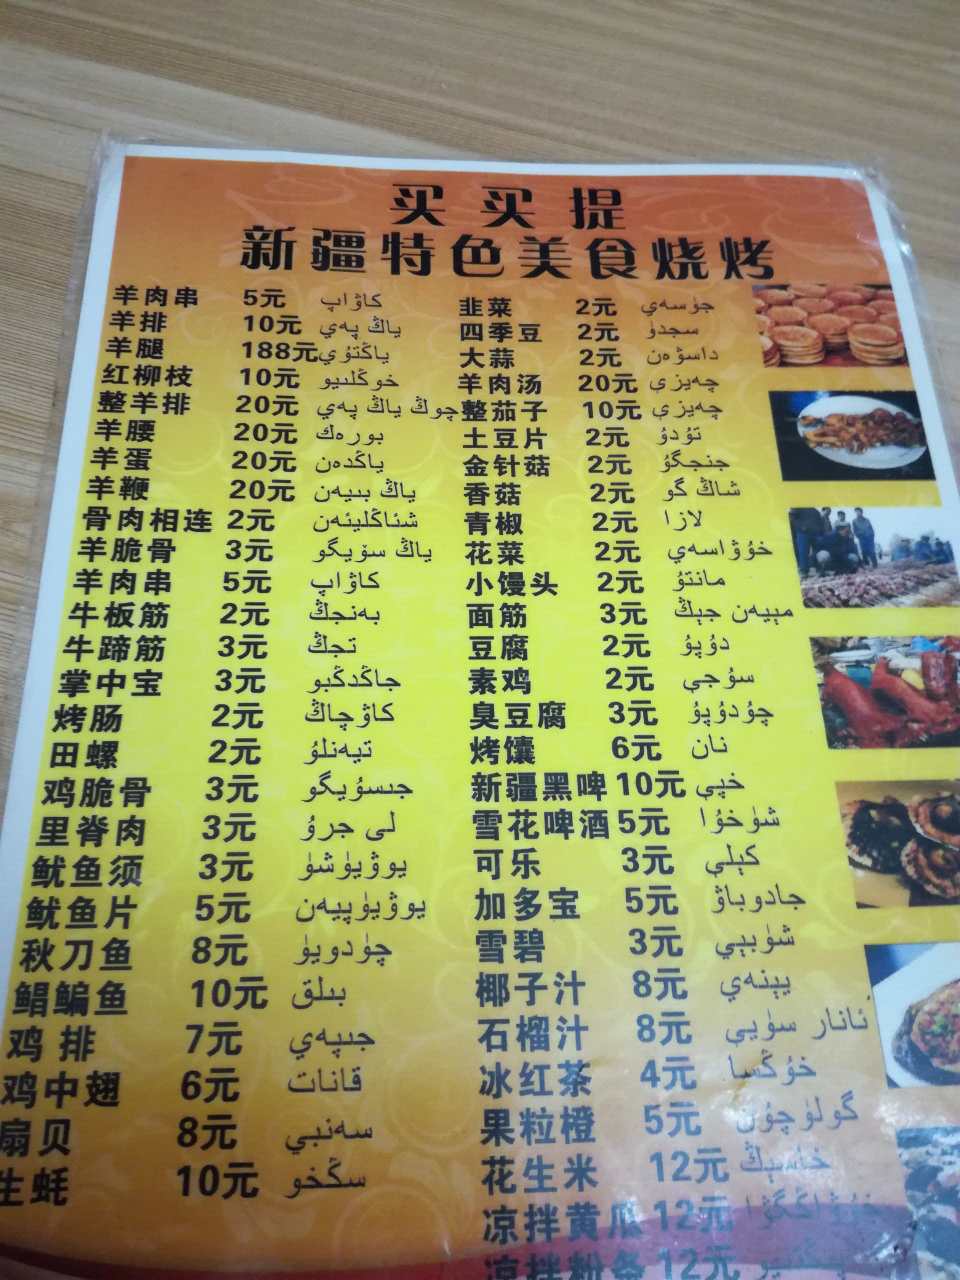 买买提
新疆特色美食烧烤
羊肉串 5元 كاۋاپ
羊排 10元 ياڭ پەي
羊腿 188元 ياڭتۇي
红柳枝 10元 خوڭلىيو
整羊排 20元 چوڭ ياڭ پەي
羊腰 20元 بورەك
羊蛋 20元 ياڭدەن
羊鞭 20元 ياڭ بىيەن
骨肉相连 2元 شىئاڭلىيئەن
羊脆骨 3元 ياڭ سۆيگو
羊肉串 5元 كاۋاپ
牛板筋 2元 بەنجىڭ
牛蹄筋 3元 تىجڭ
掌中宝 3元 جاڭدڭبو
烤肠 2元 كاۋچاڭ
田螺 2元 تيەنلۇ
鸡脆骨 3元 جىسۇيگو
里脊肉 3元 لى جرۇ
鱿鱼须 3元 يوۋيۈشۈ
鱿鱼片 5元 يوۋيۈپيەن
秋刀鱼 8元 چۈدويۈ
鲳鳊鱼 10元 بىلق
鸡排 7元 جىپەي
鸡中翅 6元 قانات
扇贝 8元 سەنبي
生蚝 10元 سڭخو
韭菜 2元 جۈسەي
四季豆 2元 سىجدۇ
大蒜 2元 داسۇەن
羊肉汤 20元 چەيزى
整茄子 10元 چەيزى
土豆片 2元 تۇدۇ
金针菇 2元 جىنجىگۇ
香菇 2元 شاڭ گو
青椒 2元 لازا
花菜 2元 خۇۋاسەي
小馒头 2元 مانتۇ
面筋 3元 مىيەن جىڭ
豆腐 2元 دۇپۇ
素鸡 2元 سۇجى
臭豆腐 3元 چۇدۇپۇ
烤馕 6元 نان
新疆黑啤 10元 خېي
雪花啤酒 5元 شۈخۇا
可乐 3元 كېلى
加多宝 5元 جادوباۋ
雪碧 3元 شۈبى
椰子汁 8元 يېنەي
石榴汁 8元 ئانار سۈيى
冰红茶 4元 خۇڭسا
果粒橙 5元 گولۈچۇن
花生米 12元 خاسىڭ
凉拌黄瓜 12元
凉拌粉条 12元